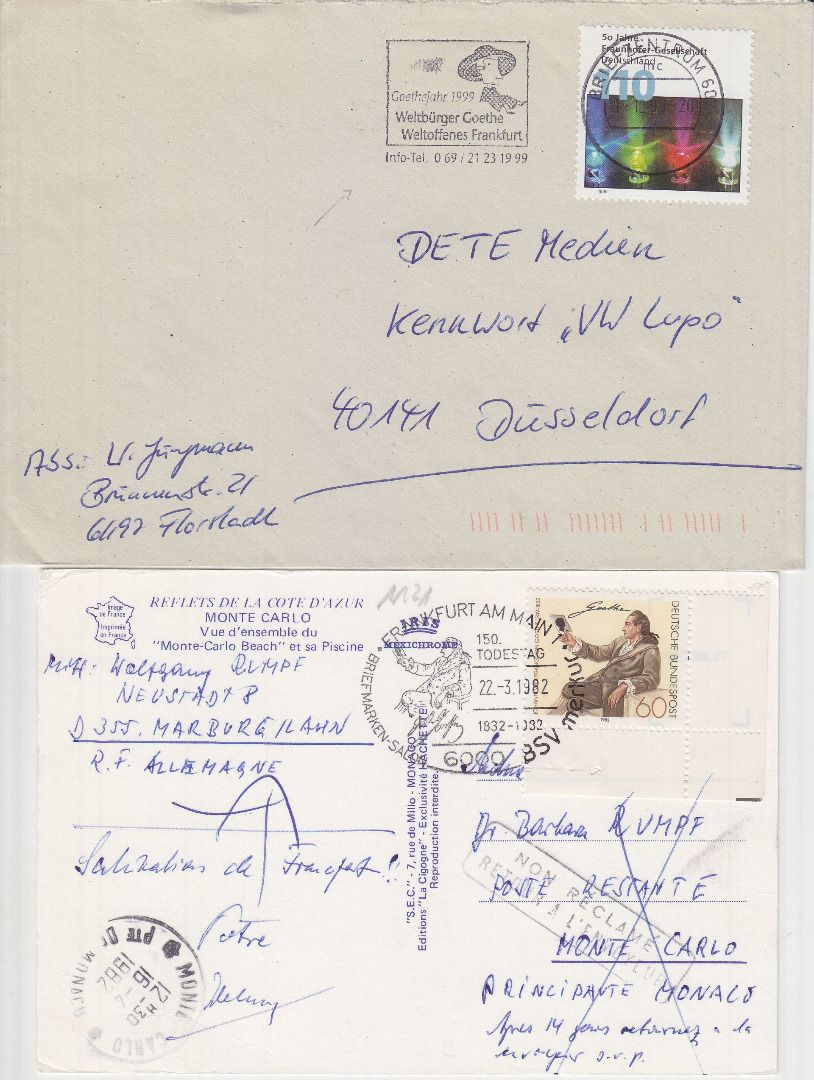 Goethejahr 1999
Weltbürger Goethe
Weltoffenes Frankfurt
Info-Tel. 0 69 / 21 23 19 99
50 Jahre
Fraunhofer-Gesellschaft
Deutschland
110
BRIEFZENTRUM 60
mc
DETE Medien
Kennwort „VW Lupo“
40141 Düsseldorf
Abs.: W. Jungmann
Brunnenstr. 21
61197 Florstadt
1121
Image
de France
Imprimée
en France
REFLETS DE LA COTE D'AZUR
MONTE CARLO
Vue d'ensemble du
"Monte-Carlo Beach" et sa Piscine
IRIS
MEXICHROME
Wolfgang RUMPF
NEUSTADT 8
D 355 MARBURG/LAHN
R.F. ALLEMAGNE
Salutations de Francfort!!
Votre
MONTE CARLO
PTE
MONACO
12 H 30
16
1982
"S.E.C." - 7, rue de Millo - MONACO
Editions "La Cigogne" - Exclusivité HACHETTE
Reproduction interdite.
FRANKFURT AM MAIN 1
BRIEFMARKEN-SALON
150.
TODESTAG
22.-3.1982
1832-1932
6000
BSV merkur
Goethe
DEUTSCHE BUNDESPOST
60
1982
Dr. Barbara RUMPF
POSTE RESTANTE
MONTE CARLO
PRINCIPANTE MONACO
Après 14 jours retournez a la
envoyeur s.v.p.
NON RÉCLAMÉ
RETOUR A L'ENVOYEUR